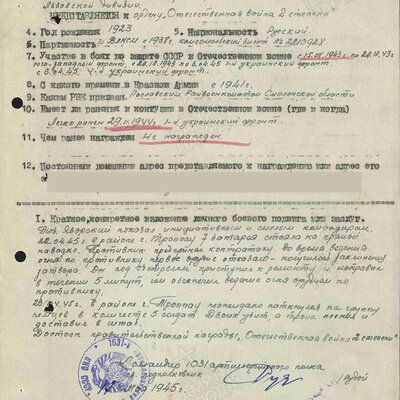 Львовской дивизии
ПРЕДСТАВЛЯЕТСЯ к ордену „Отечественная война 2 степени"
4. Год рождения 1923 5. Национальность Русский
6. Партийность ВЛКСМ с 1938г. комсомольский билет №
7. Участие в боях по защите СССР и Отечественной войне с 15.04.1943г. по 20.10.43
Юго-Западный фронт, с 22.11.1943 по 5.04.45 1-й украинский фронт.
с 6.04.45. 4-й украинский фронт.
8. С какого времени в Красной Армии с 1941г.
9. Каким РВК призван Рославским Райвоенкоматом Смоленской области
10. Имеет ли ранения и контузии в Отечественной войне (где и когда)
Легко ранен 29.11.1944г. 1-й украинский фронт.
11. Чем ранее награжден Не награжден.
12. Постоянный домашний адрес представляемого к награждению или адрес его
I. Краткое, конкретное изложение личного боевого подвига или заслуг.
Тов. Яворский показал инициативным и смелым командиром.
22.04.45 в районе г. Троппау 7 батарея стояла на прямой
наводке. Противник предпринял контратаку. Во время ведения
огня по противнику первое орудие отказало
затвора. Он под обстрелом приступил к ремонту исправил
в течении 5 минут, чем обеспечил ведение огня орудием по
противнику.
04.45г. В районе г. Троппау неожиданно наткнулся на группу
немцев в количестве 5 солдат. Двоих убил, а троих пленил и
доставил в штаб.
Достоин правительственной награды „Отечественная война 2 степени"
Командир 1031 артиллерийского полка
подполковник
1945г.